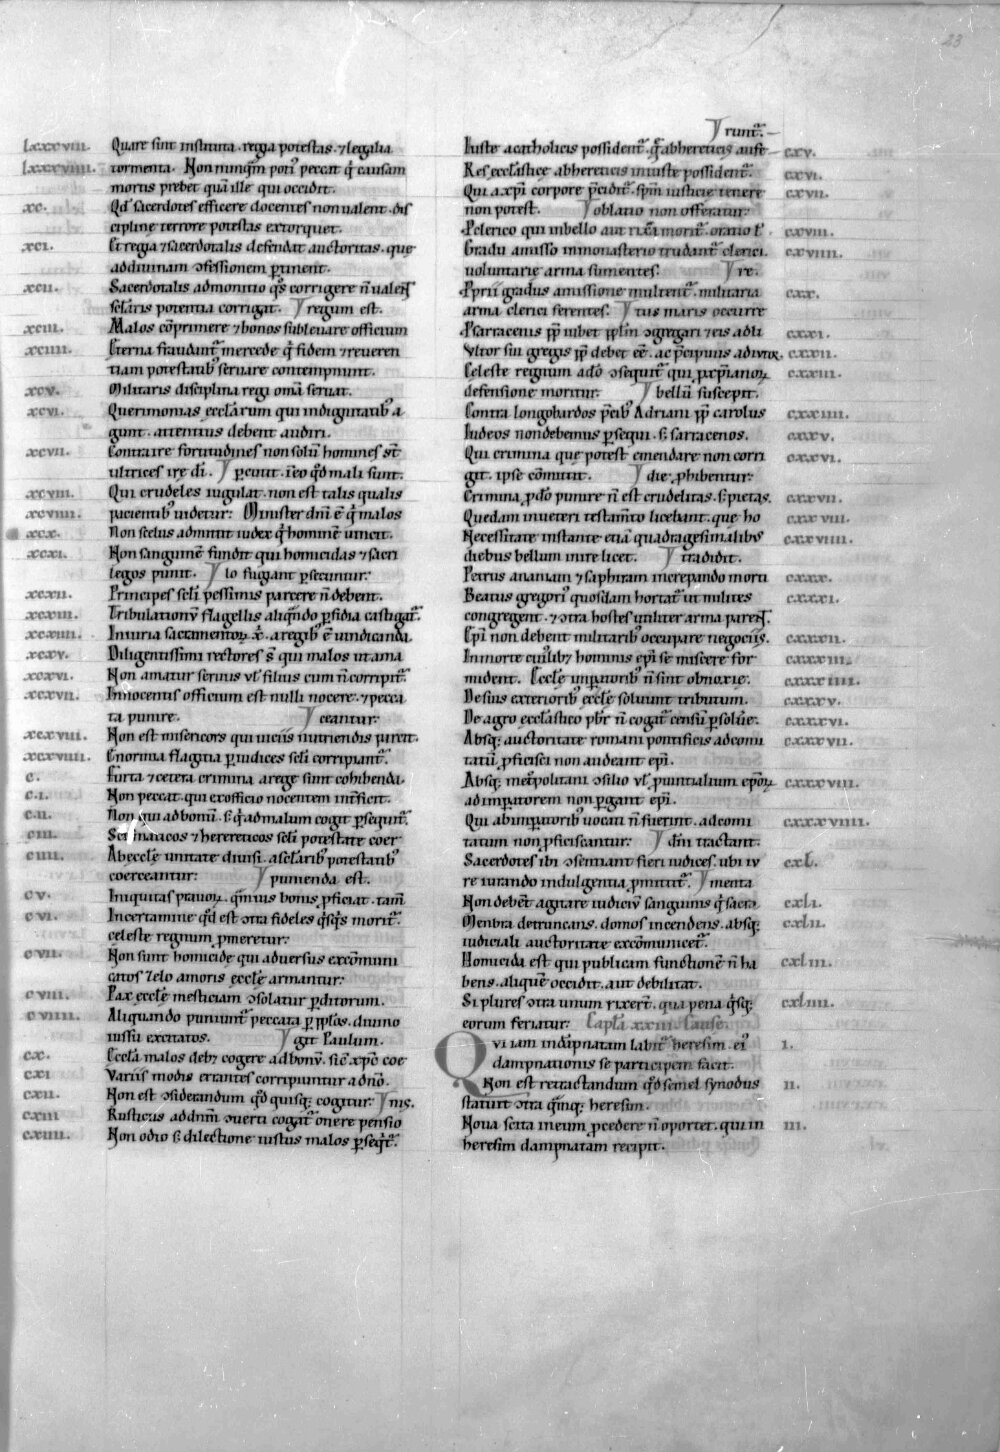 23
lxxxviii. Quare sint instituta. regia potestas. ⁊ legalia
lxxxviiii. tormenta. Non nunq̄m poti᷒ peccat q̇ causam
mortis prebet quā ille qui occidit.
xc. Qd̄ sacerdotes efficere docentes non ualent. dis
cipline terrore potestas extorquet.
xci. Et regia ⁊ sacerdotalis defendit auctoritas. que
ad diuinam ɔfessionem ꝑtinent.
xcii. Sacerdotalis admonitio q̄s corrigere n̄ ualet
sēlaris potentia corrigat. regum est.
xciii. Malos cōprimere ⁊ bonos subleuare officium
xciiii. Eterna fraudunt᷑ mercede q̇ fidem ⁊ reueren
tiam potestatib᷒ seruare contempnunt.
xcv. Militaris disciplina regi omā seruat.
xcvi. Querimonias ecclārum qui indignitatib᷒ a
gunt. attentius debent audiri.
xcvii. Contra ire fortitudines non solū homines st̄
ultrices ire dī. percutit. iēo qd̄ mali sunt.
xcviii. Qui crudeles iugulat. non est talis qualis
xcviiii. pacientib᷒ uidetur. Minister dn̄i ē q̇ malos
xcx. Non scelus admittit iudex q̇ hominē
xcxi. Non sanguinē fundit qui homicidas ⁊ sacri
legos punit. lo fugant ꝑsecuntur.
xcxii. Principes sēli pessimis parcere n̄ debent.
xcxiii. Tribulationū flagellis aliqn̄do ꝑfidia castigat᷑.
xcxiiii. Iniuria sacramentoꝝ x̄. a regib᷒ ē uindicanda.
xcxv. Diligentissimi rectores s̄ qui malos ut ama
xcxvi. Non amatur seruus ul̄ filius cum n̄ corripit᷑.
xcxvii. Innocentis officium est nulli nocere. ⁊ pecca
ta punire. ceantur.
xcxviii. Non est misericors qui uiciis nutriendis parcit.
xcxviiii. Enormia flagitia ꝑ iudices sēli corripiant᷑.
c. Furta ⁊ cetera crimina a rege sunt cohibenda.
c.i. Non peccat. qui ex officio nocentem int̄ficit.
c.ii. Non qui ad bonū. s̄ q̇ ad malum cogit ꝑsequit᷑.
c iii. Scismaticos ⁊ hereticos sēli potestate coer
c iiii. Ab ecclē unitate diuisi. a sēlarib᷒ potestatib᷒
coerceantur. punienda est.
c v. Iniquitas prauoꝝ. q̄muis bonis ꝓficiat. tam̄
c vi. In certamine qd̄ est ɔtra fideles q̇sq̇s morit᷑.
celeste regnum ꝓmeretur.
c vii. Non sunt homicidę qui aduersus excōmuni
catos zelo amoris ecclē armantur.
c viii. Pax ecclē mesticiam ɔsolatur ꝑditorum.
c viiii. Aliquando puniunt᷑ peccata ꝑ ꝓplōs. diuino
iussu excitatos. git Paulum.
c x. Ecclā malos deb; cogere ad bonū. sic̄ xp̄c coe
c xi Variis modis errantes corripiuntur a dn̄o.
c xii. Non est ɔsiderandum qd̄ quisq; cogitur. nis.
c xiii Rusticus ad dn̄m ɔuerti cogat᷑ onere pensio
c xiiii. Non odio s̄ dilectione iustus malos ꝑseq̇t᷑.
runt᷑.
Iuste a catholicis possident᷑. q̄ ab hereticis aufe cxv.
Res ecclāstice ab hereticis iniuste possident᷑. cxvi.
Qui a xp̄i corpore p̄cidit᷑. sp̄m iusticie tenere cxvii.
non potest. oblatio non offeratur.
P clerico qui in bello aut rixa morit᷑. oratio ł cxviii.
Gradu amisso in monasterio trudant᷑ clerici cxviiii.
uoluntarie arma sumentes. re.
Pprii gradus amissione multent᷑. militaria cxx.
arma clerici ferentes. tus maris occurre
P sarracenis pp̄ iubet ppl̄m ɔgregari ⁊ eis ad li cxxi.
Vltor sui gregis pp̄ debet ēē. ac p̄cipuus adiutor. cxxii.
Celeste reignum a dō ɔsequit᷑ qui ꝓ xp̄ianoꝝ cxxiii.
defensione moritur. bellū suscepit.
Contra longobardos p̄cib᷒ Adriani pp̄ carolus cxxiiii.
Iudeos non debemus ꝑsequi. s̄ sarracenos. cxxv.
Qui crimina que potest emendare non corri cxxvi.
git. ipse cōmittit. die ꝓhibentur.
Crimina ꝓ dō punire n̄ est crudelitas. s̄ pietas. cxxvii.
Quedam in ueteri testam̄to licebant. que ho cxxviii.
Necessitate instante etiā quadragesimalib᷒ cxxviiii.
diebus bellum inire licet. tradidit.
Petrus ananiam ⁊ saphiram increpando morti cxxx.
Beatus gregori᷒ quosdam hortat᷑ ut milites cxxxi.
congregent. ⁊ ɔtra hostes uiriliter arma parent.
Epī non debent militarib᷒ occupare negociis. cxxxii.
In morte cui᷒lib; hominis epī se miscere for cxxxiii.
mident. Ecclē imꝑatorib᷒ n̄ sint obnoxie. cxxxiiii.
De suis exteriorib᷒ ecclē soluunt tributum. cxxxv.
De agro ecclāstico pb̄r n̄ cogat᷑ censū ꝑsoluē. cxxxvi.
Absq; auctoritate romani pontificis ad comi cxxxvii.
tatū ꝓficisci non audeant epī.
Absq; met̄politani ɔsilio ul̄ ꝓuintialium ep̄oꝝ cxxxviii.
ad imꝑatorem non ꝑgant epī.
Qui ab imꝑatorib᷒ uocati n̄ fuerint. ad comi cxxxviiii.
tatum non ꝓficiscantur. dīn tractant.
Sacerdotes ibi ɔsentiant fieri iudices. ubi iu cxl.
re iurando indulgentia ꝓmittit᷑. menta
Non debēt agitare iudiciū sanguinis q̇ sacra cxli.
Menbra detruncans. domos incendens. absq; cxlii.
iudiciali auctoritate excōmunicet᷑.
Homicida est qui publicam functionē n̄ ha cxliii.
bens. aliquē occidit. aut debilitat.
Si plures ɔtra unum rixent᷑. qua pena q̇sq; cxliiii.
eorum feriatur. Capl̄a xxiiii. Cause.
Qvi iam indāpnatam labit᷑ heresim. ei᷒ i.
dampnationis se participem facit.
Non est retractandum qd̄ semel synodus ii.
statuit ɔtra q̄mq; heresim.
Noua scita in eum ꝓcedere n̄ oportet. qui in iii.
heresim dampnatam recipit.